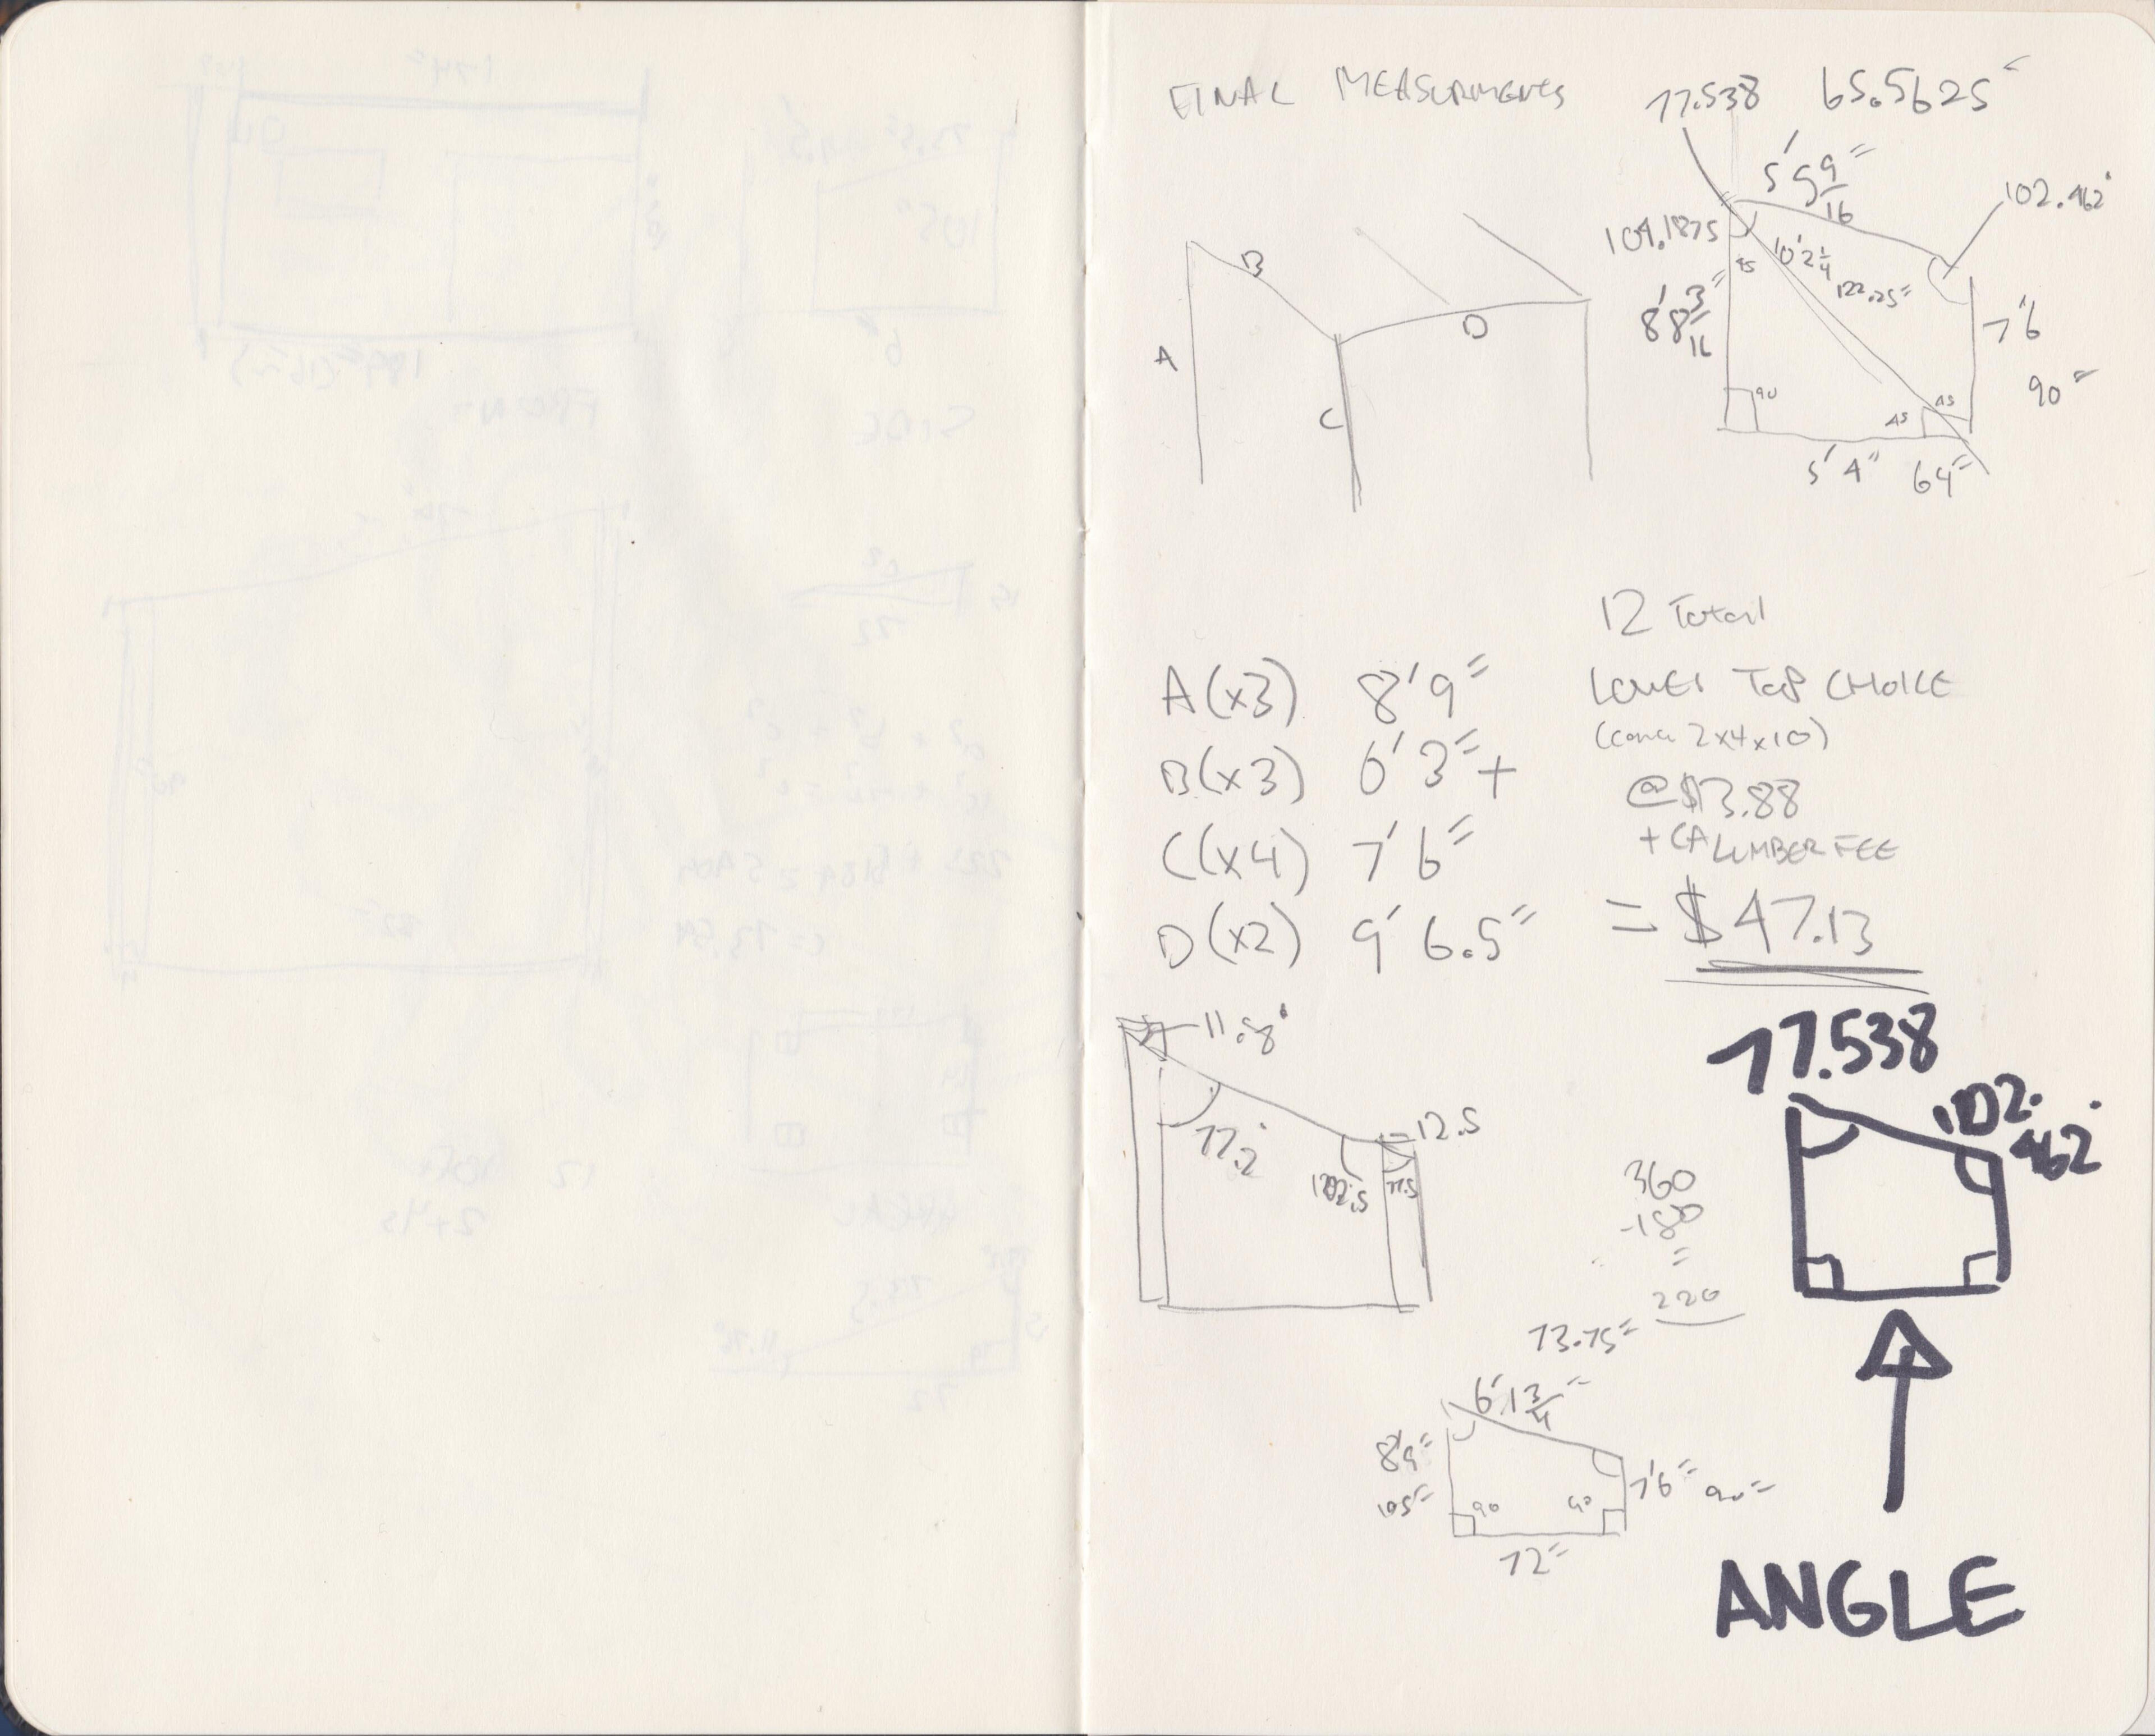 FINAL MEASURMENTS
77.538 65.5625"
5' 5 9/16"
102.462°
104.1875
45
10' 2 1/4
122.25"
8' 8 3/16"
7'6
90"
90
45
45
5' 4" 64"
A
B
C
D
12 Total
LOWES TOP CHOICE
(
2x4x10)
@$3.88
+ CA LUMBER FEE
= $47.13
A(x3) 8'9"
B(x3) 6'3"+
C(x4) 7'6"
D(x2) 9' 6.5"
11.8°
77.2°
12.5
102.5
77.5
77.538
102.
462°
360
-180
=
220
73.75"
6' 1 3/4"
8'9"
105"
90
90
7'6" 90"
72"
ANGLE